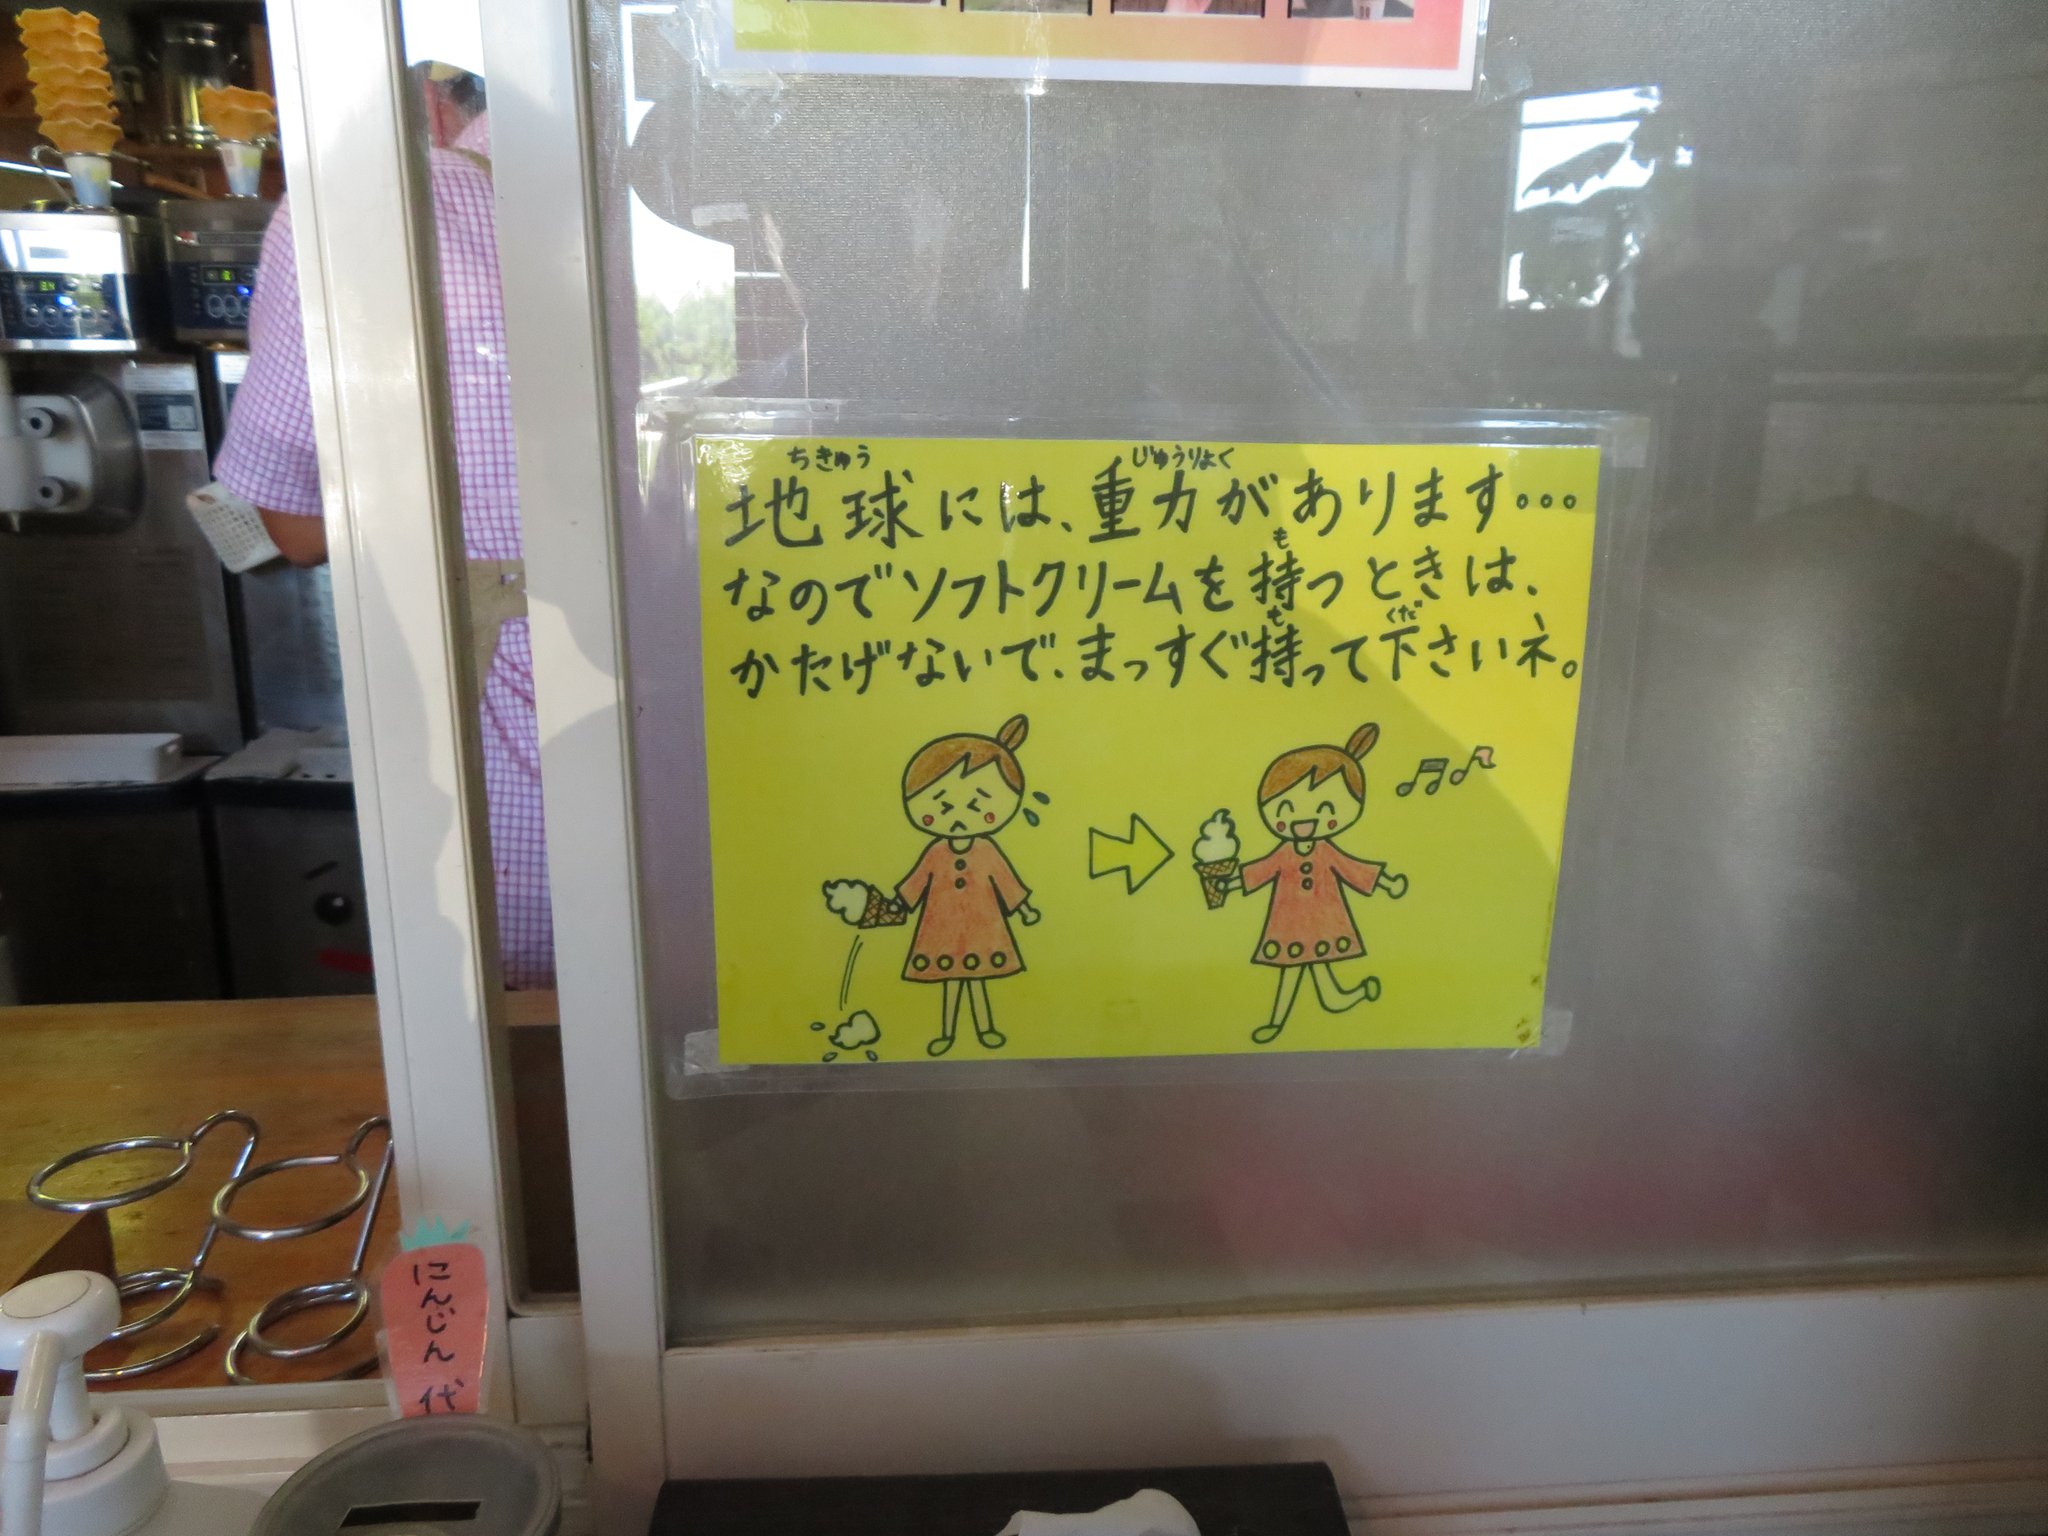 ちきゅう じゅうりょく
地球には、重力があります...
も
なのでソフトクリームを持つときは、
も くだ
かたげないで、まっすぐ持って下さいネ。
にんじん代